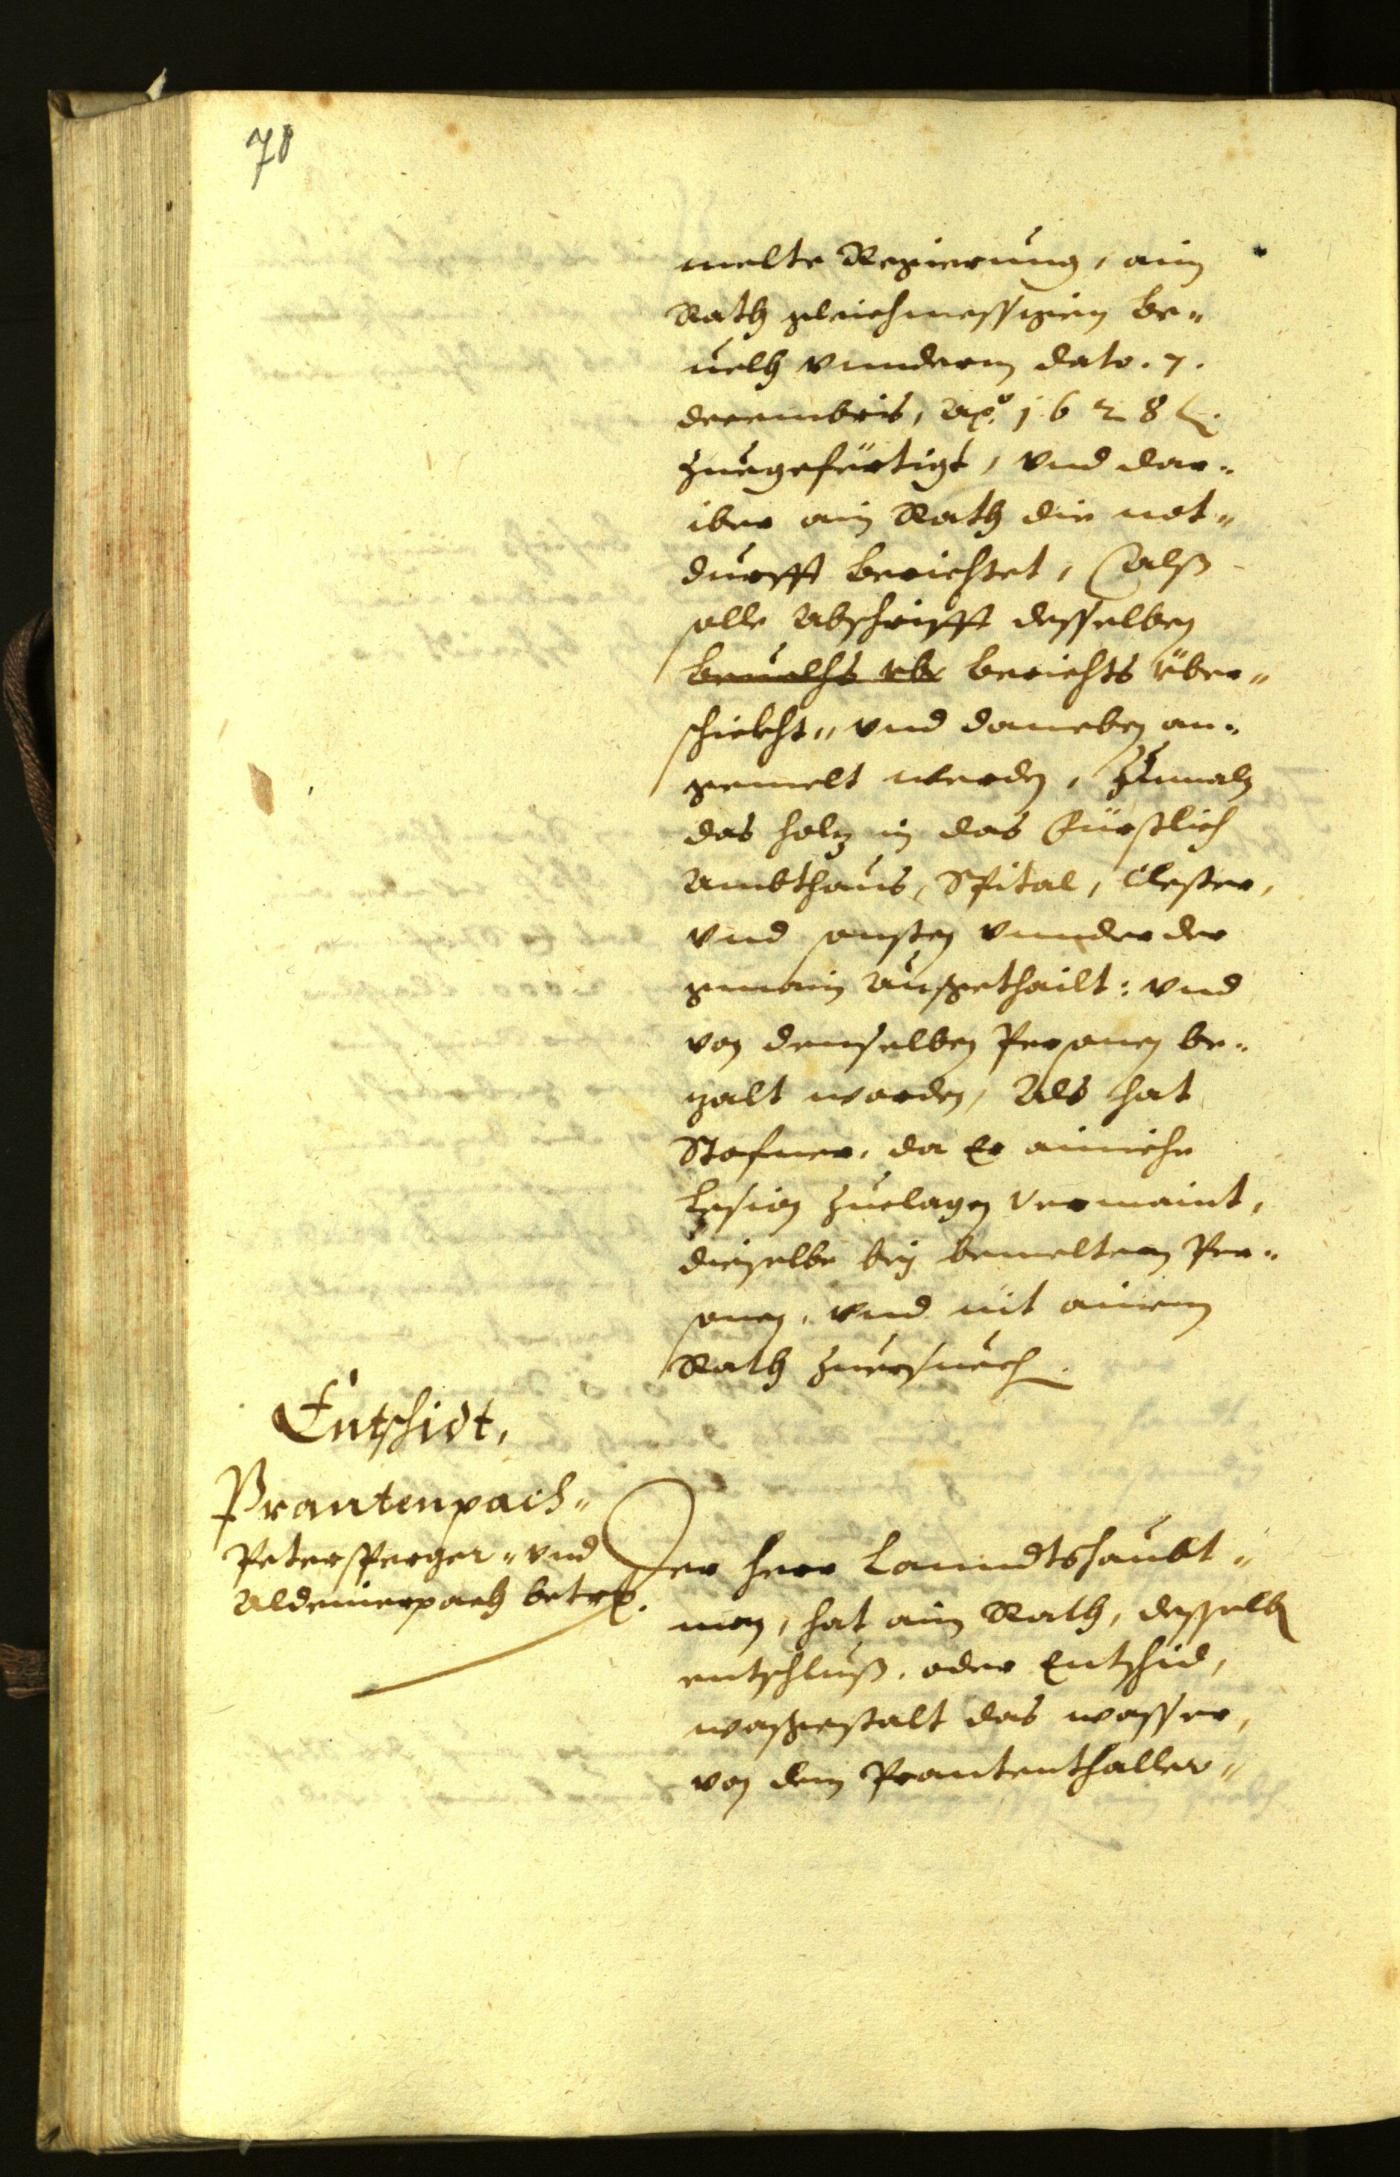 70
melte Regierung, aim
Rath gleichmessigen be„
uelh vnnderm dato. 7.
decembris, Aō. 1628
zuegefürtigt, vnd dar„
iber ain Rath die not„
durfft berichtet, Calß
solle Abschrifft desselben
beuelhs vb berichts über„
schickht„ vnd daneben an„
gemelt werden, Zumaln
das holz in das Fürstlich
Ambthaus, Spital, Clester,
vnd sonsten vnnder der
gmain außgethailt: vnd
von denselben Personen be„
zalt worden, Als hat
Stofner, da Er ainiche
Lesion zuclagen vermaint,
dieselbe bey bemelten Per„
sonen, vnd nit ainem
Rath zuersuech.
Entschidt,
Prantenpach„
Petersperger„ vnd
Aldeinerpach betr.
Der herr Lanndtshaubt„
man, hat aim Rath, desselb
entschluß, oder Entschid,
waßgestalt das wasser,
von dem Prantenthaller„